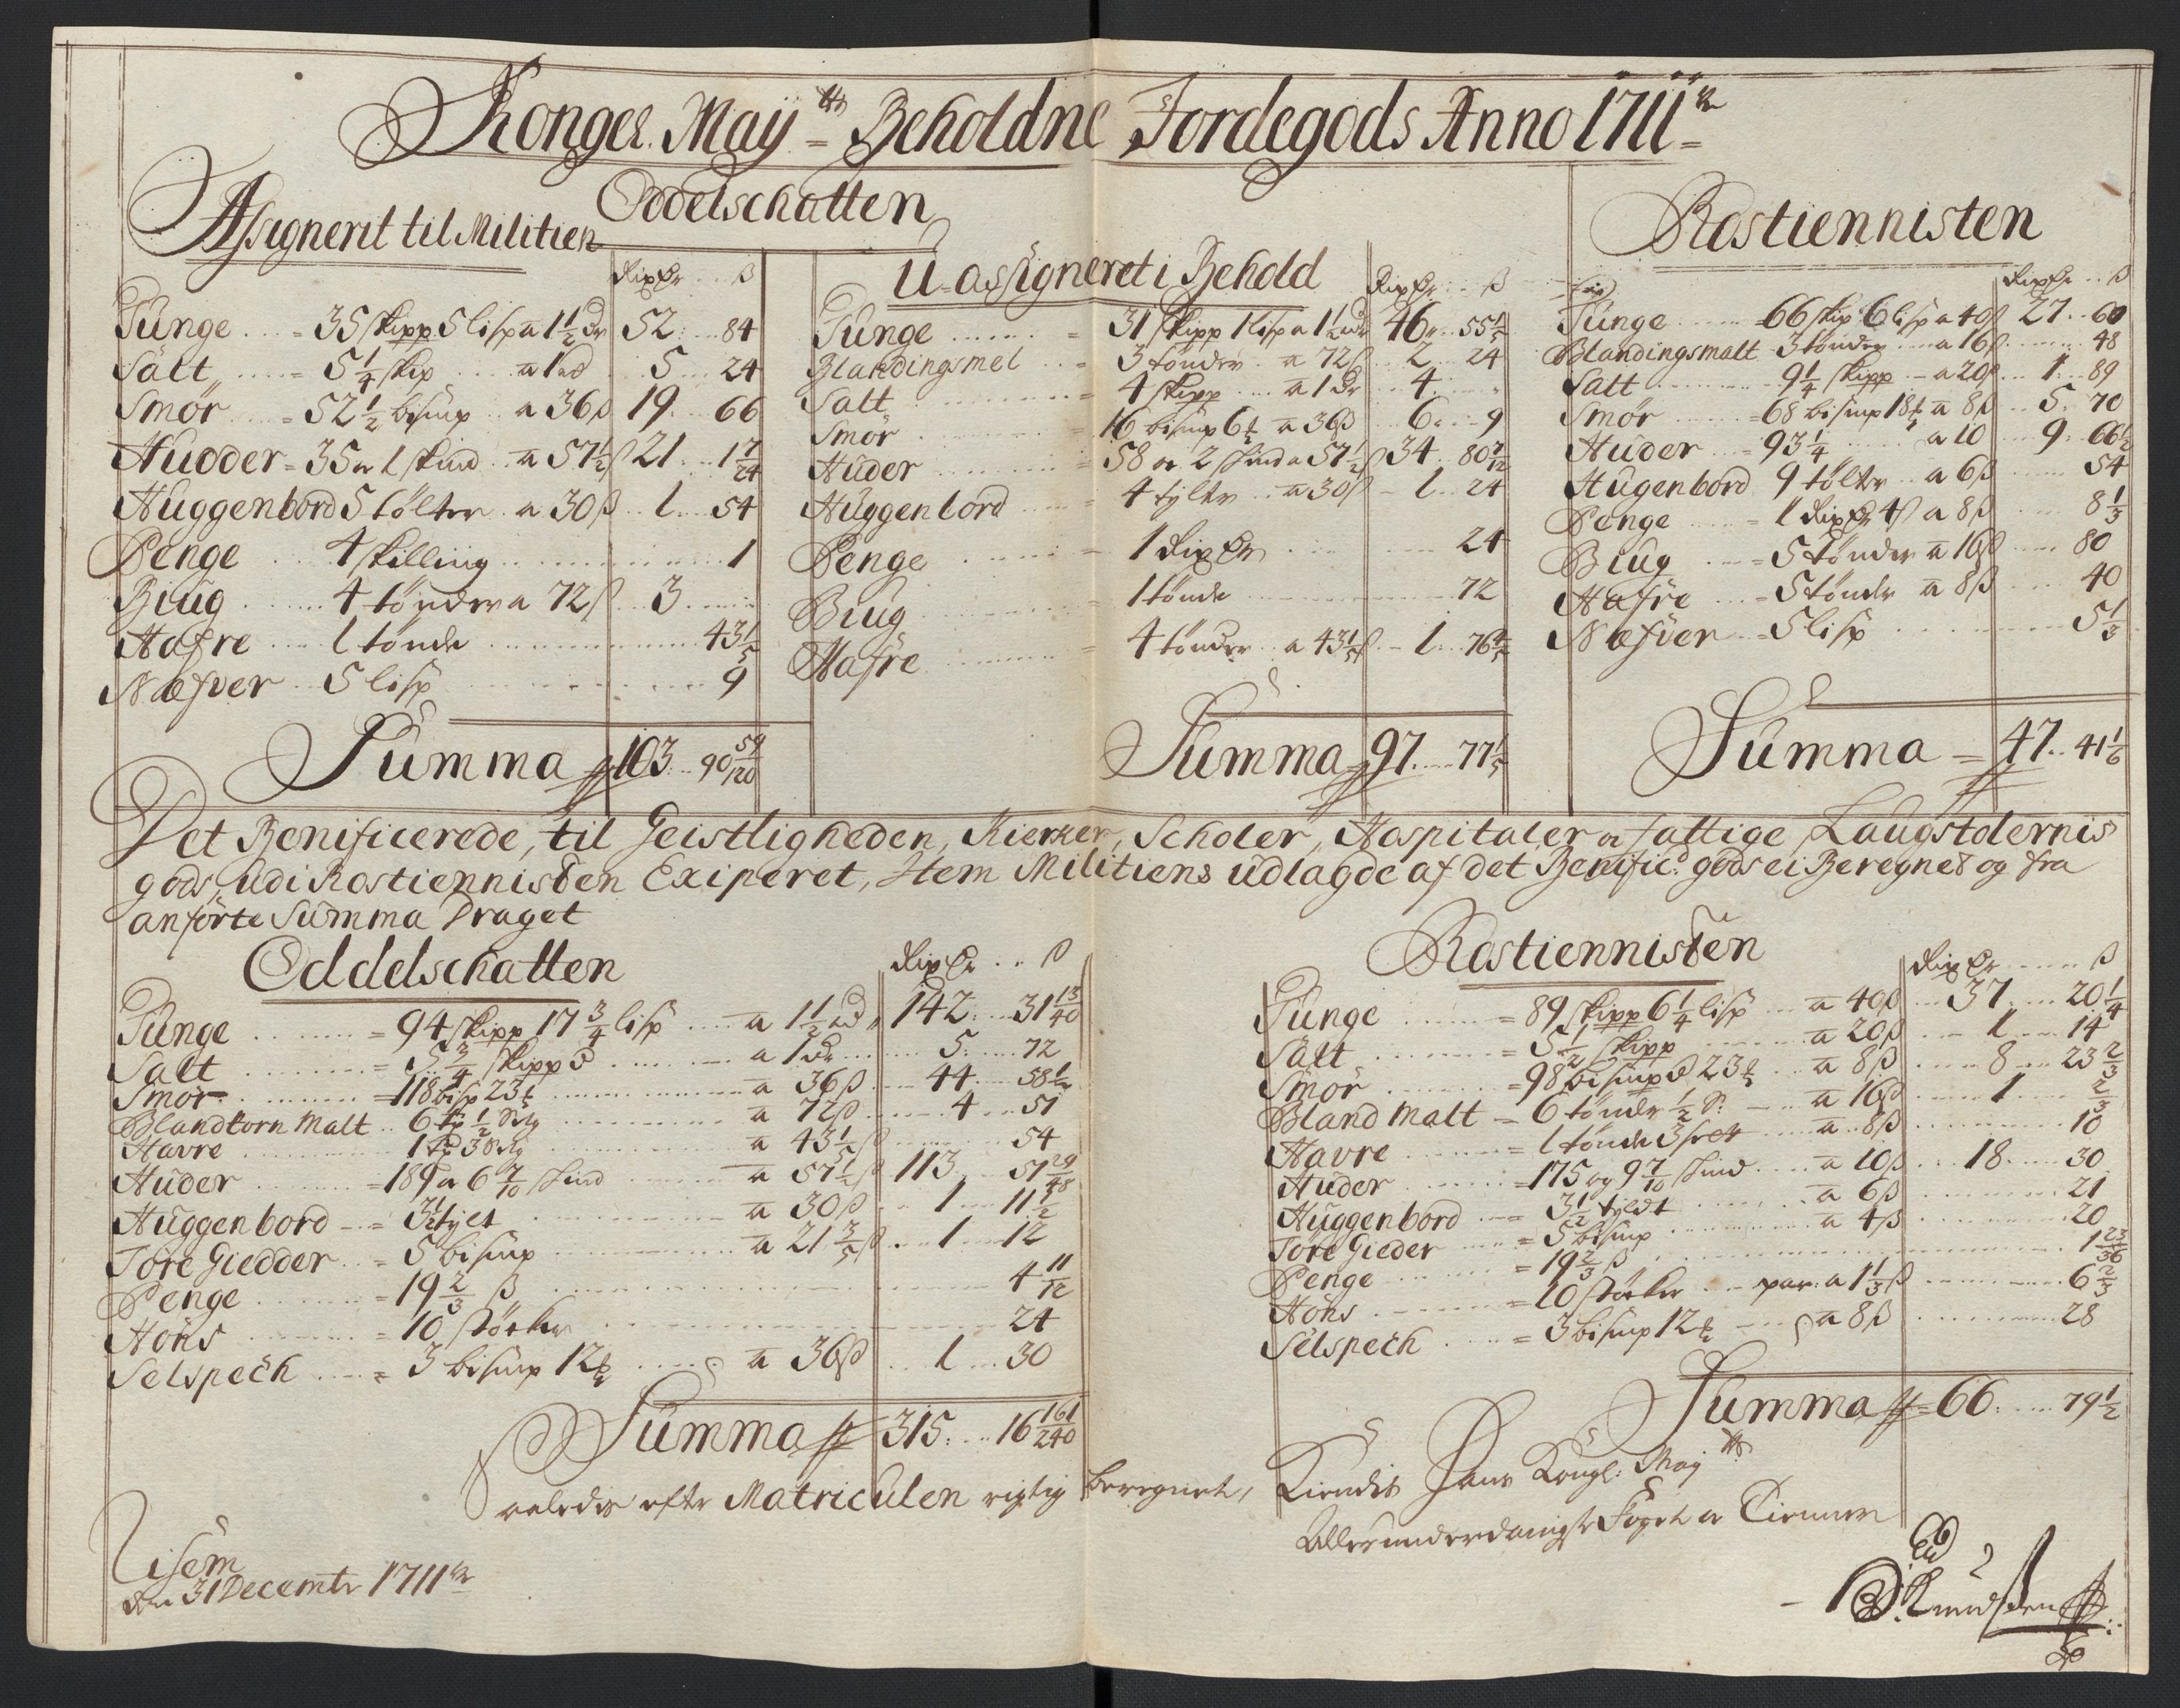 Kongel. Maij^ts Beholdne Jordegods Anno 1711^r
Oddelschatten
Assignerit til Militien
RixDr ß
Tunge = 35 skipp 5 lisp a 1 1/2 dr 52: 84
Salt = 5 1/4 skip a 1 rd 5 24
Smör = 52 1/2 bisinp a 36 ß 19 66
Hudder = 35 og 1 skind a 57 1/2 ß 21 1 7/24
Huggenbord 5 tölter a 30 ß 1 54
Penge 4 skilling 1
Biug 4 tönder a 72 ß 3
Hafre 1 tönde 43 1/5
Næfver 5 lisp 9
Summa 103 90 59/120
U-assigneret i Behold
RixDr ß
Tunge = 31 skipp 1 lisp a 1 1/2 dr 46 55 1/5
Blandingsmel = 3 tönder a 72 ß 2 24
Salt = 4 skipp a 1 dr 4
Smör = 16 bisinp 6 ℔ a 36 ß 6 9
Huder = 58 og 2 skind a 57 1/2 ß 34 80 7/12
Huggenbord = 4 tylter a 30 ß 1 24
Penge = 1 RixDr 24
Biug = 1 tönde 72
Hafre = 4 tönder a 43 1/5 ß 1 76 4/5
Summa 97 77 1/5
Rostiennisten
RixDr ß
Tunge = 66 skip 6 lisp a 40 ß 27 60
Blandingsmalt 3 tönder a 16 ß 48
Salt 9 1/4 skipp a 20 ß 1 89
Smör = 68 bisinp 18 ℔ a 8 ß 5 70
Huder = 93 1/4 a 10 9 66 1/2
Hugenbord 9 tölter a 6 ß 54
Penge = 1 RixDr 4 ß a 8 ß 8 1/3
Biug = 5 tönder a 16 ß 80
Hafre = 5 tönder a 8 ß 40
Næfver = 5 lisp 5 1/3
Summa = 47 41 1/6
Det Benificerede, til Geistligheden, Kierker, Scholer, Hospitaler og fattige Laugstolernis
gods, udi Rostiennisten Exiperet, Item Militiens udlagde af det Benific: gods ei Beregnet og fra
anförte Summa Draget
Oddelschatten
RixDr ß
Tunge = 94 skipp 17 3/4 lisp a 1 1/2 rd 142 31 13/40
Salt = 5 3/4 skippd a 1 dr 5 72
Smör = 118 bisp 23 ℔ a 36 ß 44 58 1/2
Blandkorn Malt 6 tp 1/2 Setg a 72 ß 4 51
Havre 1 tp 3 Setg a 43 1/5 ß 54
Huder = 189 og 6 7/10 skind a 57 1/2 ß 113 51 29/48
Huggenbord = 3 1/2 tylt a 30 ß 1 11 1/2
Töre Giedder = 5 bisinp a 21 3/5 ß 1 12
Penge = 19 2/3 ß 4 11/12
Höns = 10 störker 24
Selspech = 3 bisinp 12 ℔ a 36 ß 1 30
Summa 315 16 161/240
Rostiennisten
RixDr ß
Tunge = 89 skipp 6 1/4 lisp a 40 ß 37 20 1/4
Salt = 5 1/2 skipp a 20 ß 1 14
Smör = 98 bisinpd 23 ℔ a 8 ß 8 23 2/3
Bland Malt = 6 tönder 1/2 S: a 16 ß 1 2/3
Havre = 1 tönde 3 a 8 ß 10
Huder = 175 og 9 7/10 skind a 10 ß 18 30
Huggenbord = 3 1/2 tyldt a 6 ß 21
Töre Gieder = 5 bisinp a 4 ß 20
Penge = 19 2/3 ß 1 23/36
Höns = 10 störker par: a 1 1/3 ß 6 2/3
Selspech = 3 bisinp 12 ℔ a 8 ß 28
Summa = 66 79 1/2
Saaledis efter Matriculen rigtig beregnet, Kiendis Hans Kongl: May^ts
Allerunderdanigste Foget og Tienner
Risem
den 31 Decembr 1711^r
Knudsen